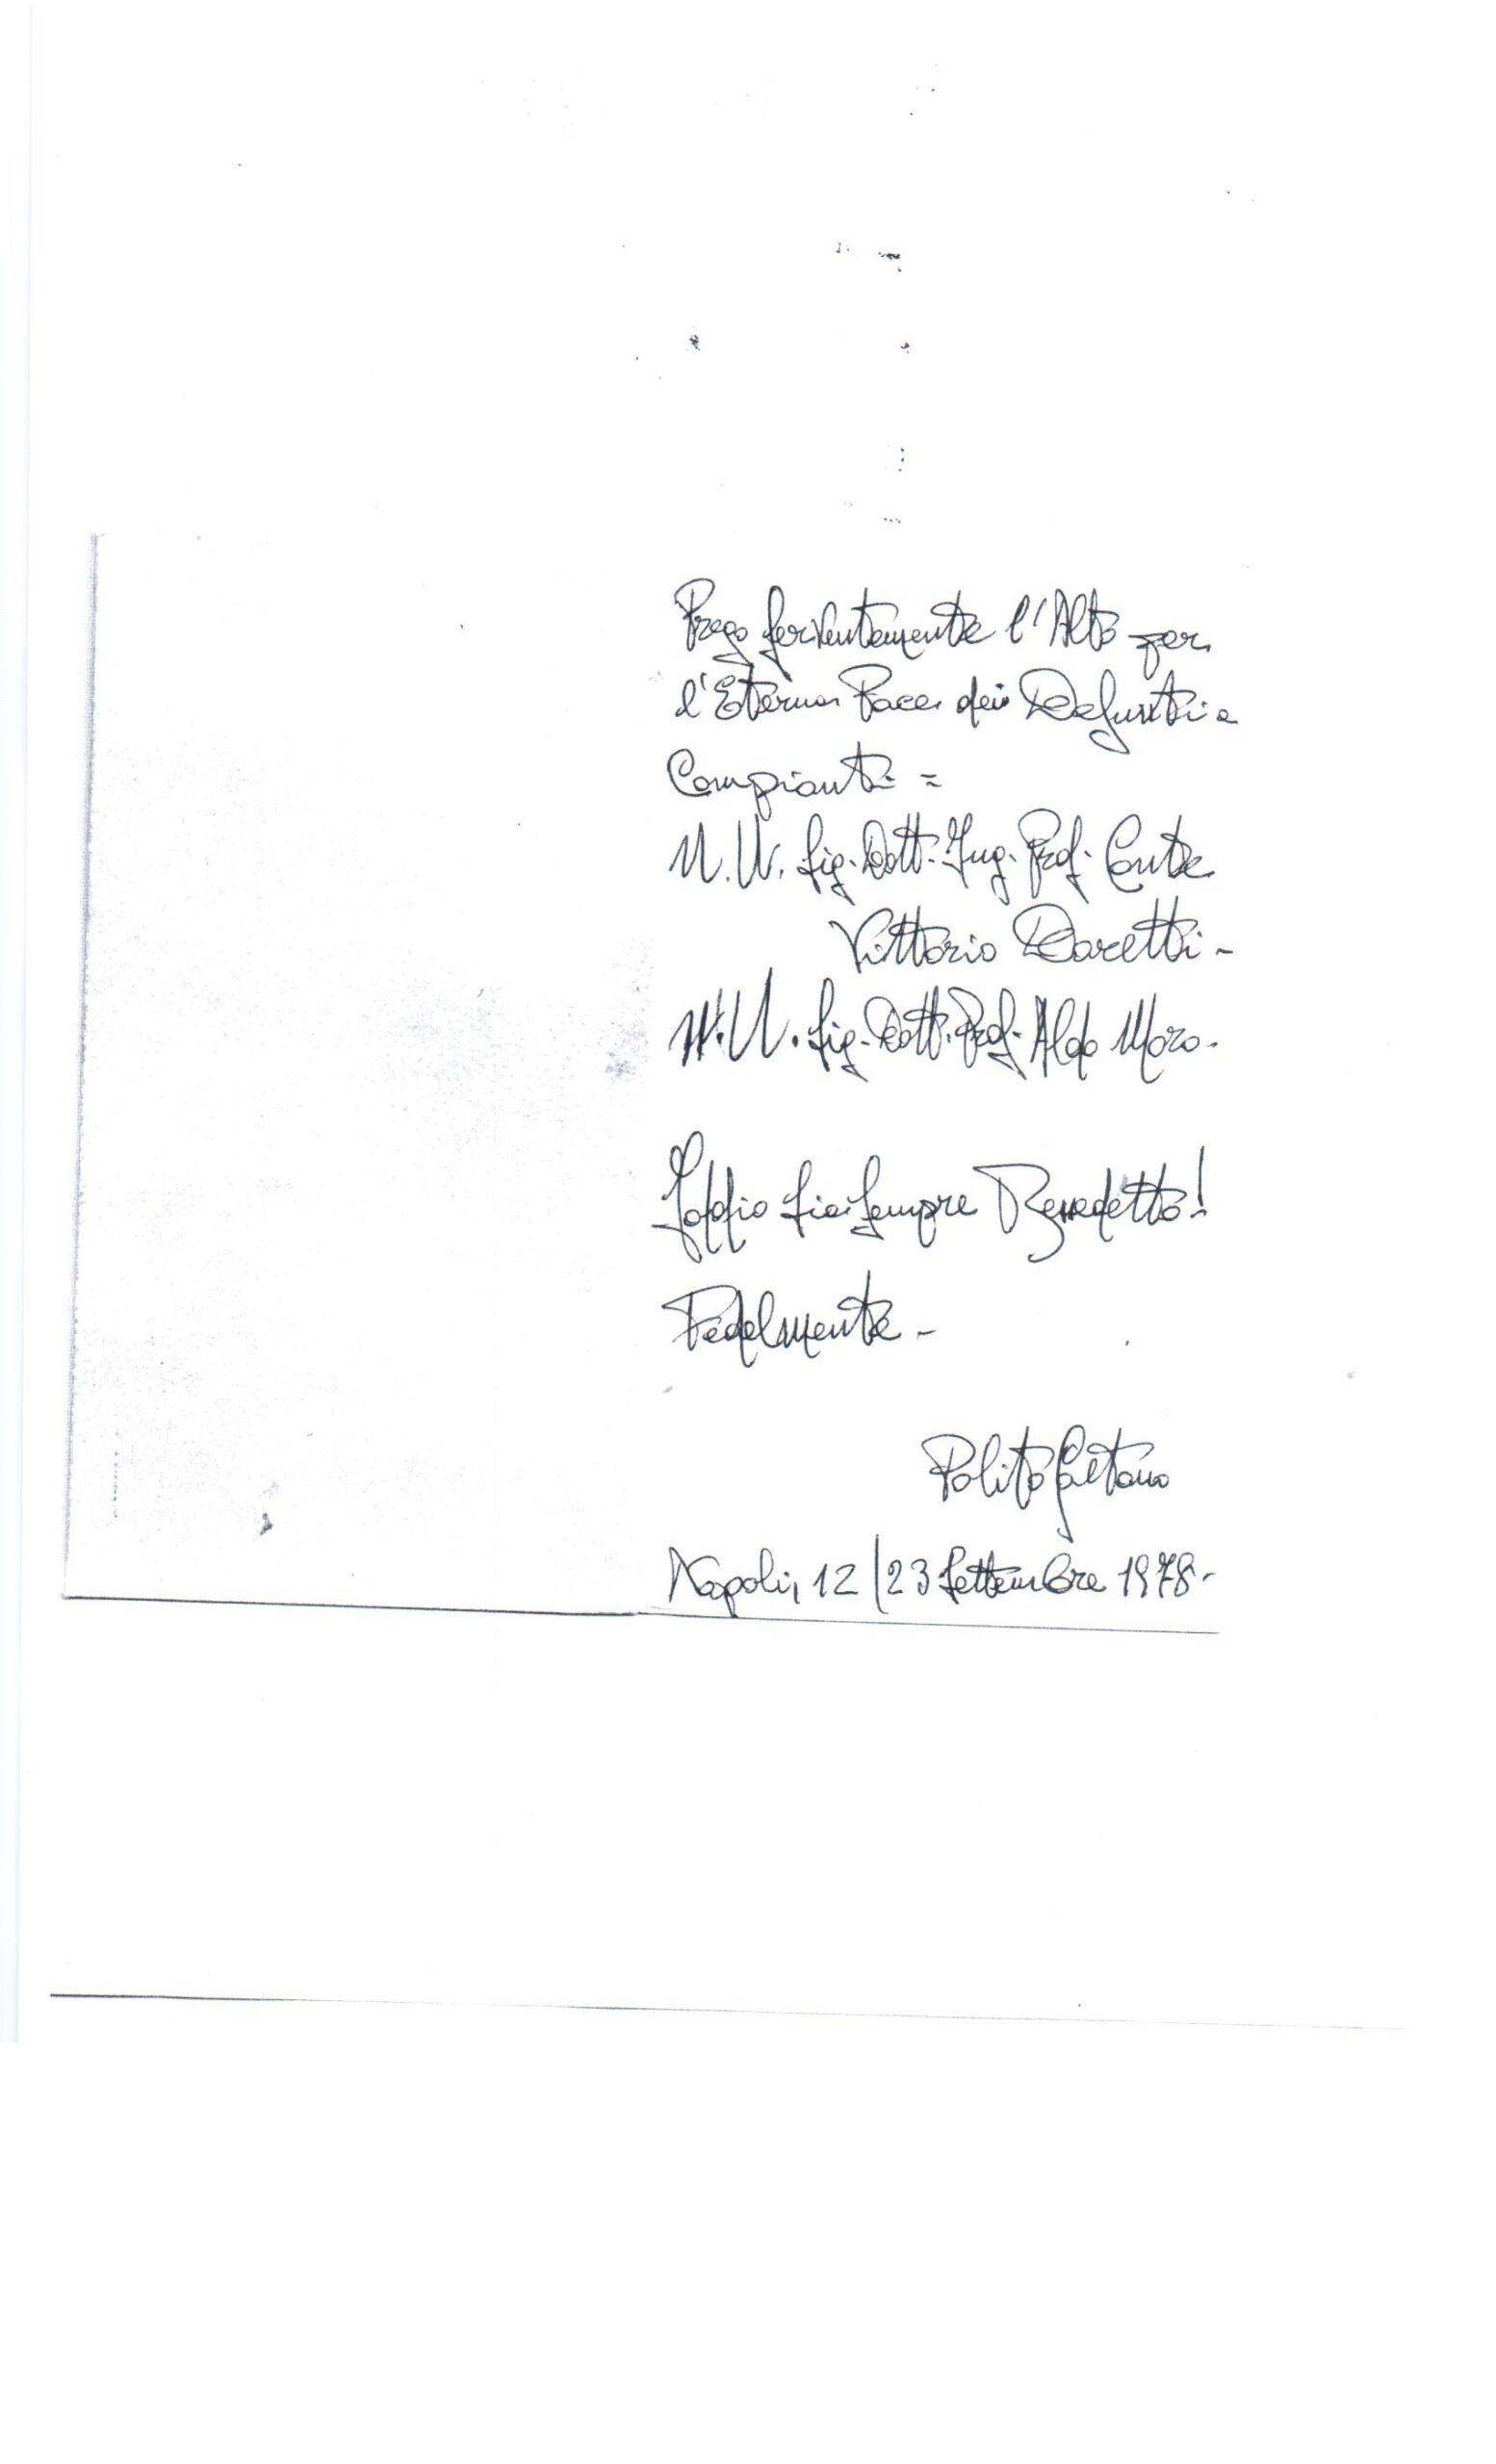 Prego ferventemente l'Alto per
l'Eterna Pace dei Defunti e
Compianti =
N.U. Sig. Dott. Ing. Prof. Conte
Vittorio Daretti -
N.U. Sig. Dott. Prof. Aldo Moro.
Iddio Sia Sempre Benedetto!
Fedelmente -
Polito Gaetano
Napoli, 12/23 Settembre 1978 -